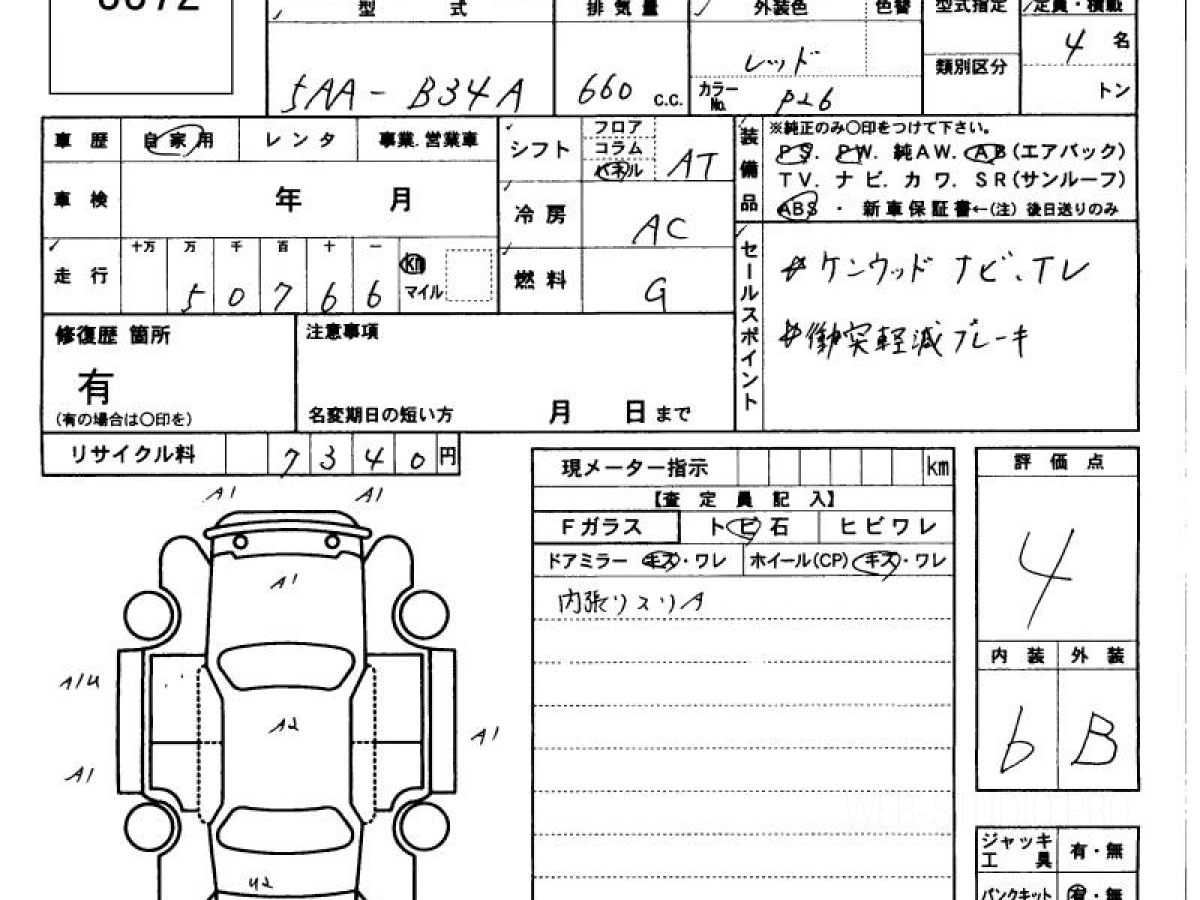 型 式 排 気 量 外装色 色替 型式指定 定員・積載
5AA-B34A 660 c.c. レッド 4 名
カラーNo. P26 類別区分 トン
車 歴 自 家 用 レ ン タ 事業.営業車
シフト フロア コラム パネル AT
車 検 年 月
冷 房 AC
走 行 十万 万 千 百 十 一
5 0 7 6 6 km マイル
燃 料 G
装備品 ※純正のみ〇印をつけて下さい。
PS. PW. 純AW. AB(エアバック)
TV. ナ ビ. カ ワ. SR(サンルーフ)
ABS ・ 新 車 保 証 書←(注) 後日送りのみ
セールスポイント
#ケンウッド ナビ、TV
#衝突軽減ブレーキ
修復歴 箇所
有
(有の場合は〇印を)
注意事項
名変期日の短い方 月 日 まで
リサイクル料 7 3 4 0 円
現メーター指示 km
【査 定 員 記 入】
Fガラス ト ビ 石 ヒ ビ ワ レ
ドアミラー キズ・ワレ ホイール(CP) キズ・ワレ
内張りスリA
評 価 点
4
内 装 外 装
b B
ジャッキ工 具 有・無
パンクキット 有・無
A1 A1
A1
A1U
A2
A1
A1
U2
WEB-STUDIO.PRO